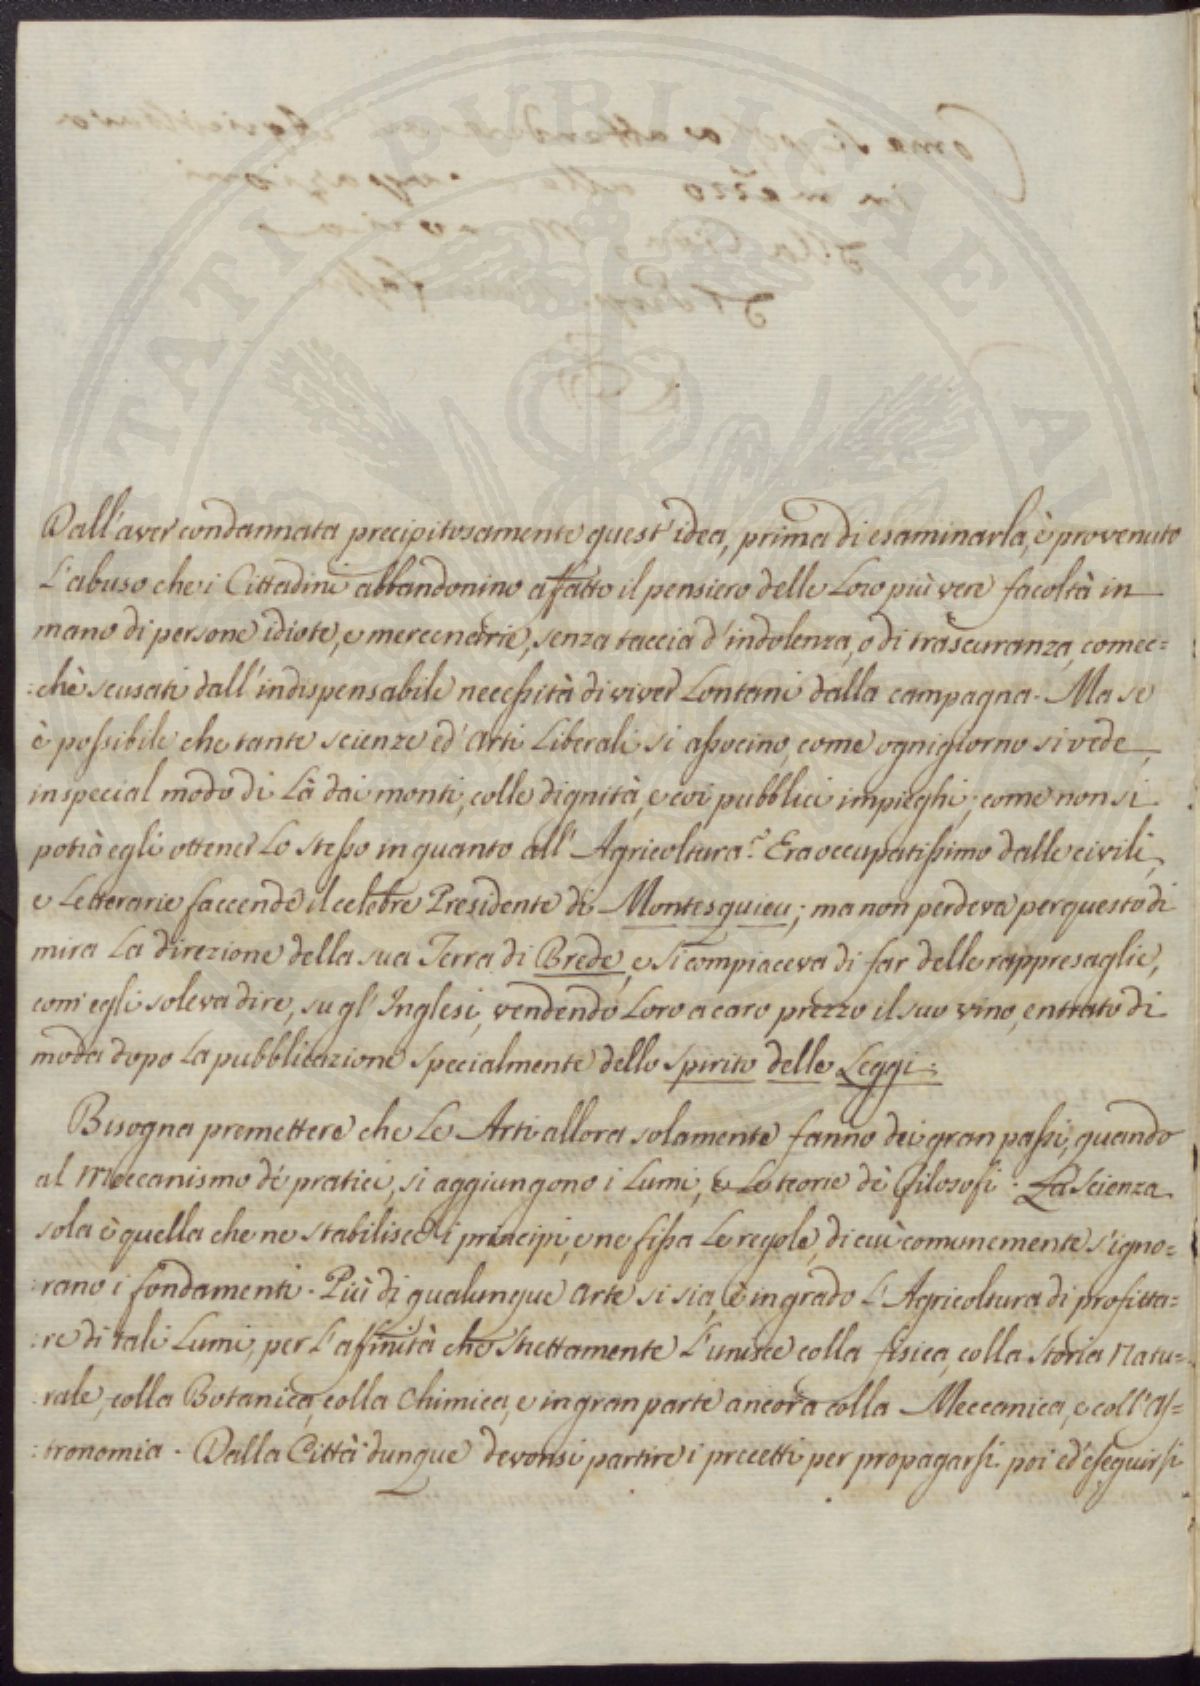 Dall'aver condannata precipitosamente quest'idea, prima di esaminarla, è provenuto
L'abuso che i Cittadini abbandonino affatto il pensiero delle Loro più vere facoltà in
mano di persone idiote, e mercenarie, senza taccia d'indolenza, o di trascuranza, comec=
:chè scusati dall'indispensabile necessità di viver Lontani dalla campagna. Ma se
è possibile che tante scienze ed'Arti Liberali si associno, come ogni giorno si vede,
in special modo di Là dai monti, colle dignità, e coi pubblici impieghi; come non si
potrà egli ottener Lo stesso in quanto all'Agricoltura? Era occupatissimo dalle civili,
e Letterarie faccende il celebre Presidente di Montesquieu; ma non perdeva per questo di
mira La direzione della sua Terra di Brede, e si compiaceva di far delle rappresaglie,
com'egli soleva dire, su gl'Inglesi, vendendo Loro a caro prezzo il suo vino, entrato di
moda dopo La pubblicazione specialmente dello spirito delle Leggi.
Bisogna premettere che Le Arti allora solamente fanno dei gran passi, quando
al Meccanismo de' pratici, si aggiungono i Lumi, e Le teorie de' filosofi. La Scienza
sola è quella che ne stabilisce i principi, e ne fissa Le regole, di cui comunemente s'igno=
:rano i fondamenti. Più di qualunque Arte si sia, è in grado L'Agricoltura di profitta=
:re di tali Lumi, per L'affinità che strettamente L'unisce colla fisica, colla Storia Natu=
:rale, colla Botanica, colla Chimica, e in gran parte ancora colla Meccanica, e coll'As=
:tronomia. Dalla Città dunque devonsi partire i precetti per propagarsi poi ed'eseguirsi